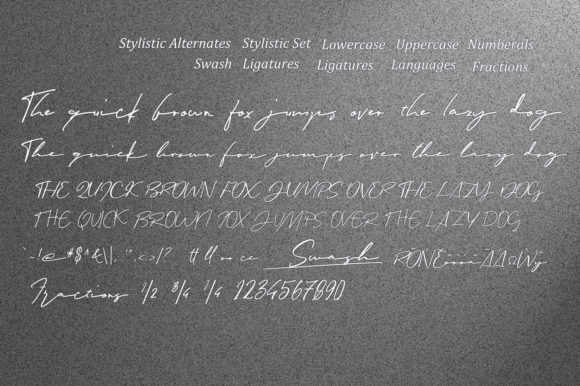 Stylistic Alternates Stylistic Set Lowercase Uppercase Numberals
Swash Ligatures Ligatures Languages Fractions
The quick brown fox jumps over the lazy dog
The quick brown fox jumps over the lazy dog
THE QUICK BROWN FOX JUMPS OVER THE LAZY DOG
THE QUICK BROWN FOX JUMPS OVER THE LAZY DOG
Swash
Fractions 1/2 3/4 1/4 1234567890